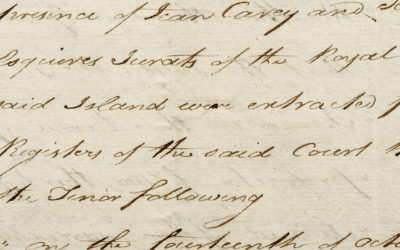 presence of Jean Carey and
Esquires Jurats of the Royal
said Island were extracted
Registers of the said Court
the Tenor following
" on the fourteenth of